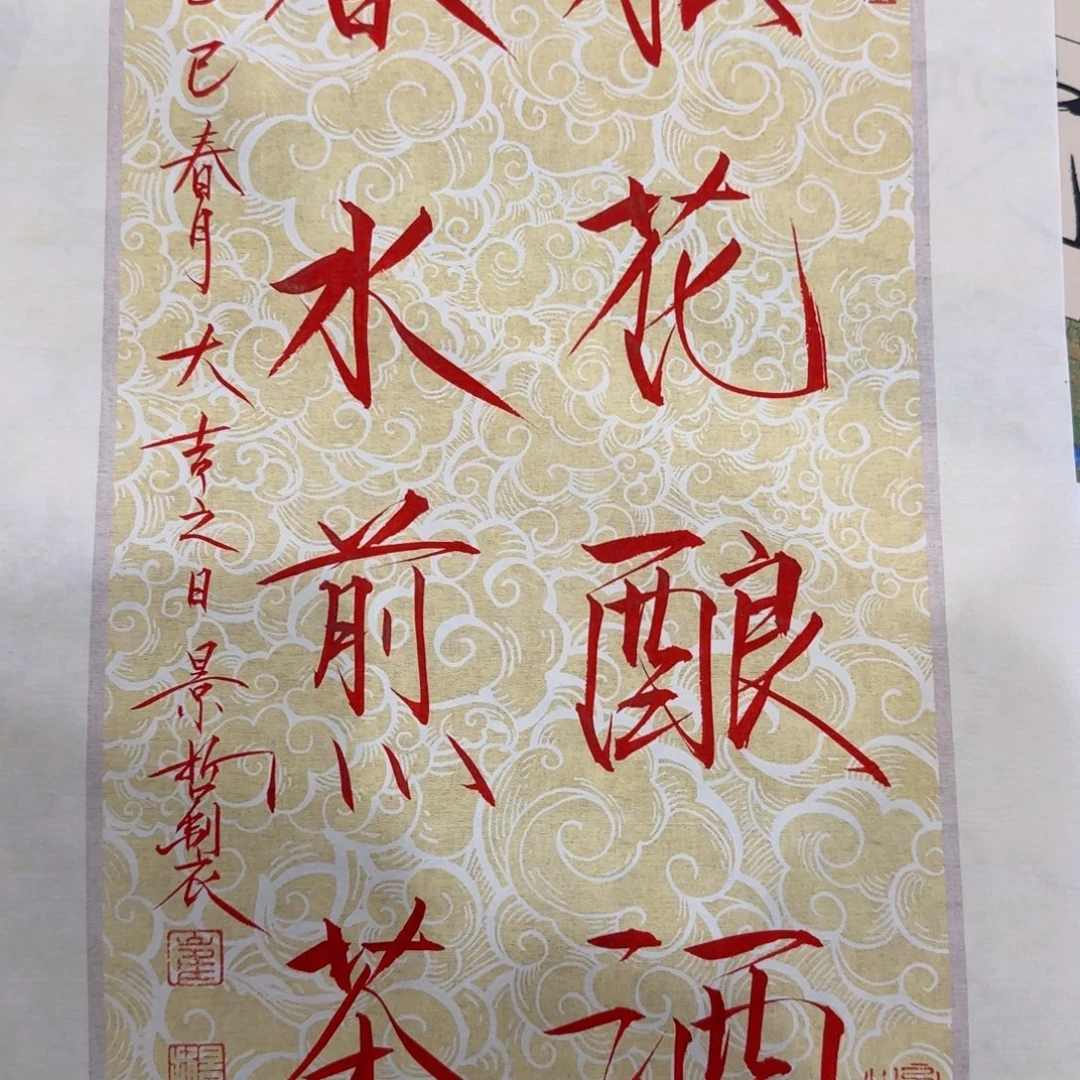 花酿酒
水煎茶
巳春月大吉之日景哲製